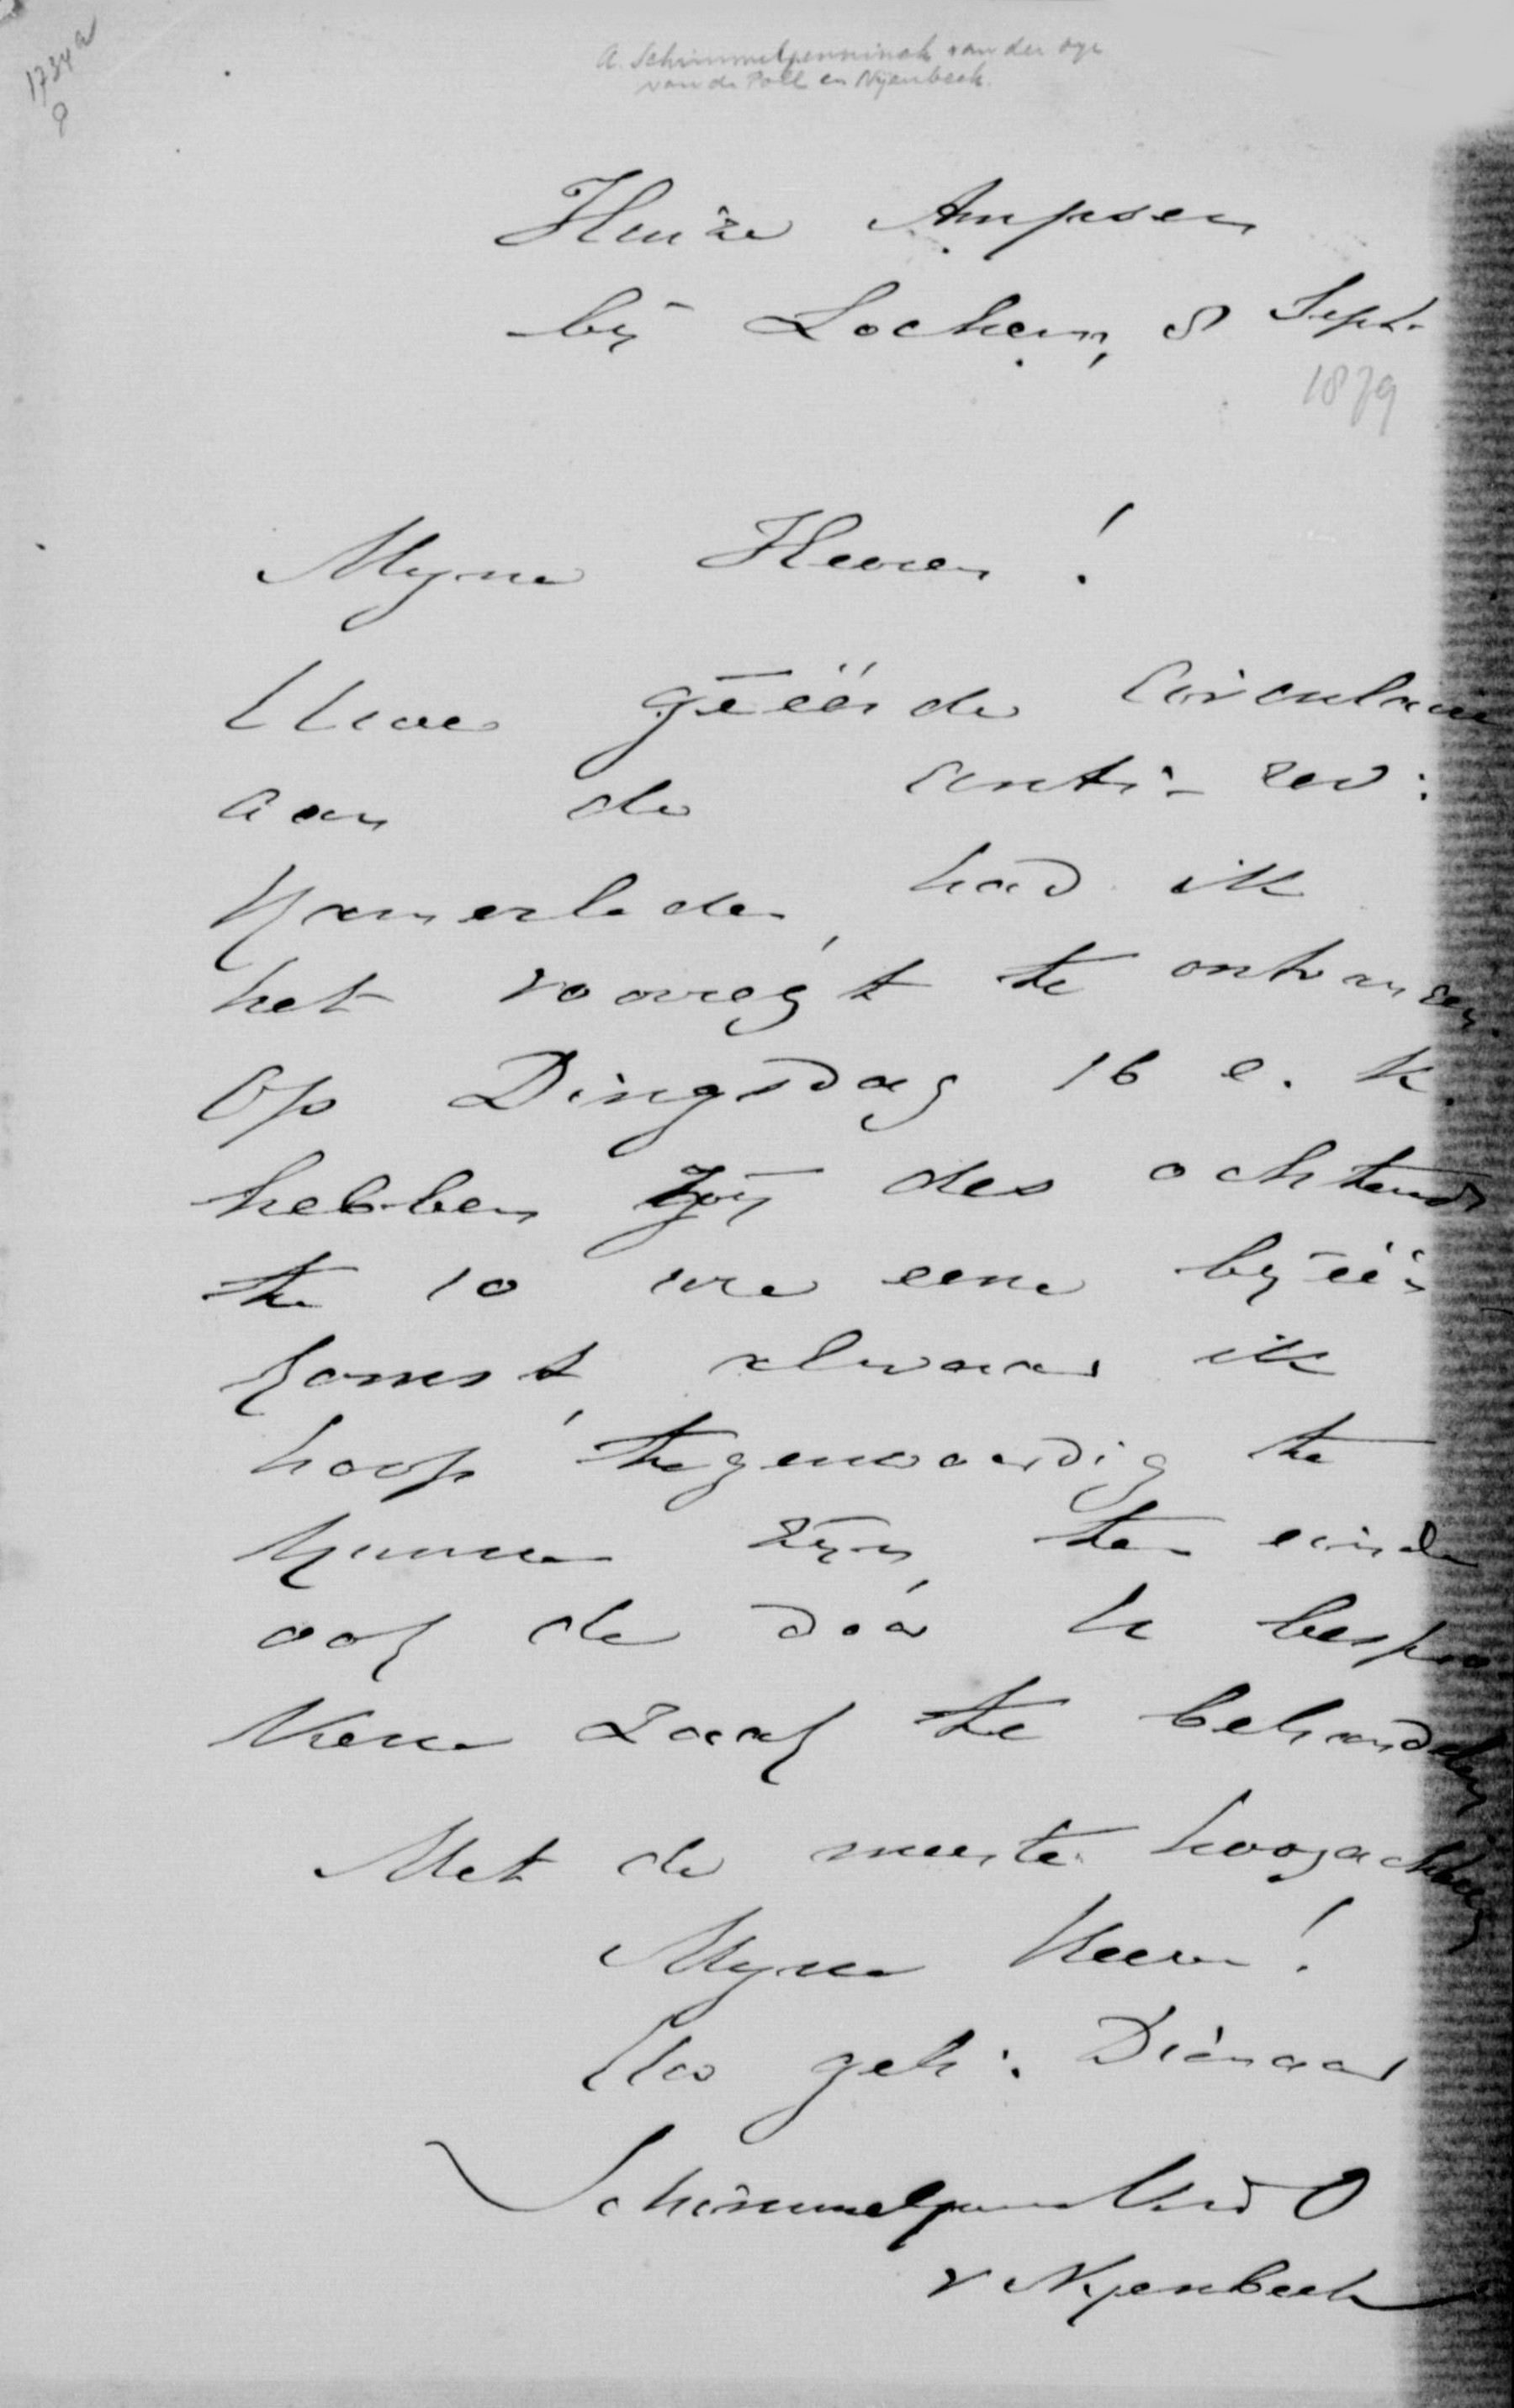 1734a
9
A. Schimmelpenninck van der Oye
van de Poll en Nyenbeek.
Huize Ampsen
bij Lochem, 8 Sept.
1879
Myne Heeren!
Uwe geëerde Circulaire
aan de anti-rev:
Kamerleden, had ik
het voorregt te ontvangen.
Op Dingsdag 16 e. k.
hebben wij des ochtends
te 10 ure eene byeen
komst, alwaar ik
hoop tegenwoordig te
kunnen zijn, ten einde
ook de door U bespro
kene zaak te behandelen
Met de meeste hoogachting
Myne Heeren!
Uw geh: Dienaar
Schimmelpenn vd O
v Nyenbeek